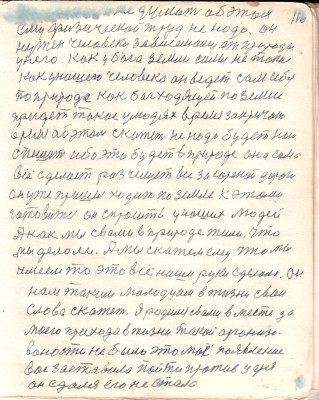 не думат об этом 116
ему физической труд не надо. он
нужен человеку зависимому от природы
у него. как у бога земли силы не такие
как у нашего человека он ведет сам себя
по природе как бог ходящей по земле
придет такое у людях время закричат
время об этом скажет не надо будет нам
спешит ибо это будет в природе она сама
всё сделает
он уже пришел ходит по земле к этому
готовитися он спросить у наших людей
А как мы с вами в природе жили, что
мы делали. А мы скажем ему что мы
имеем то это всё наши руки сделали. Он
нам таким молодцам в жизни свои
слова скажет. Я родился с вами вместе до
моего прихода в жизни такой организо-
ваности не было это моё появление
вас заставила пойти против чудея
он сдался его не стало